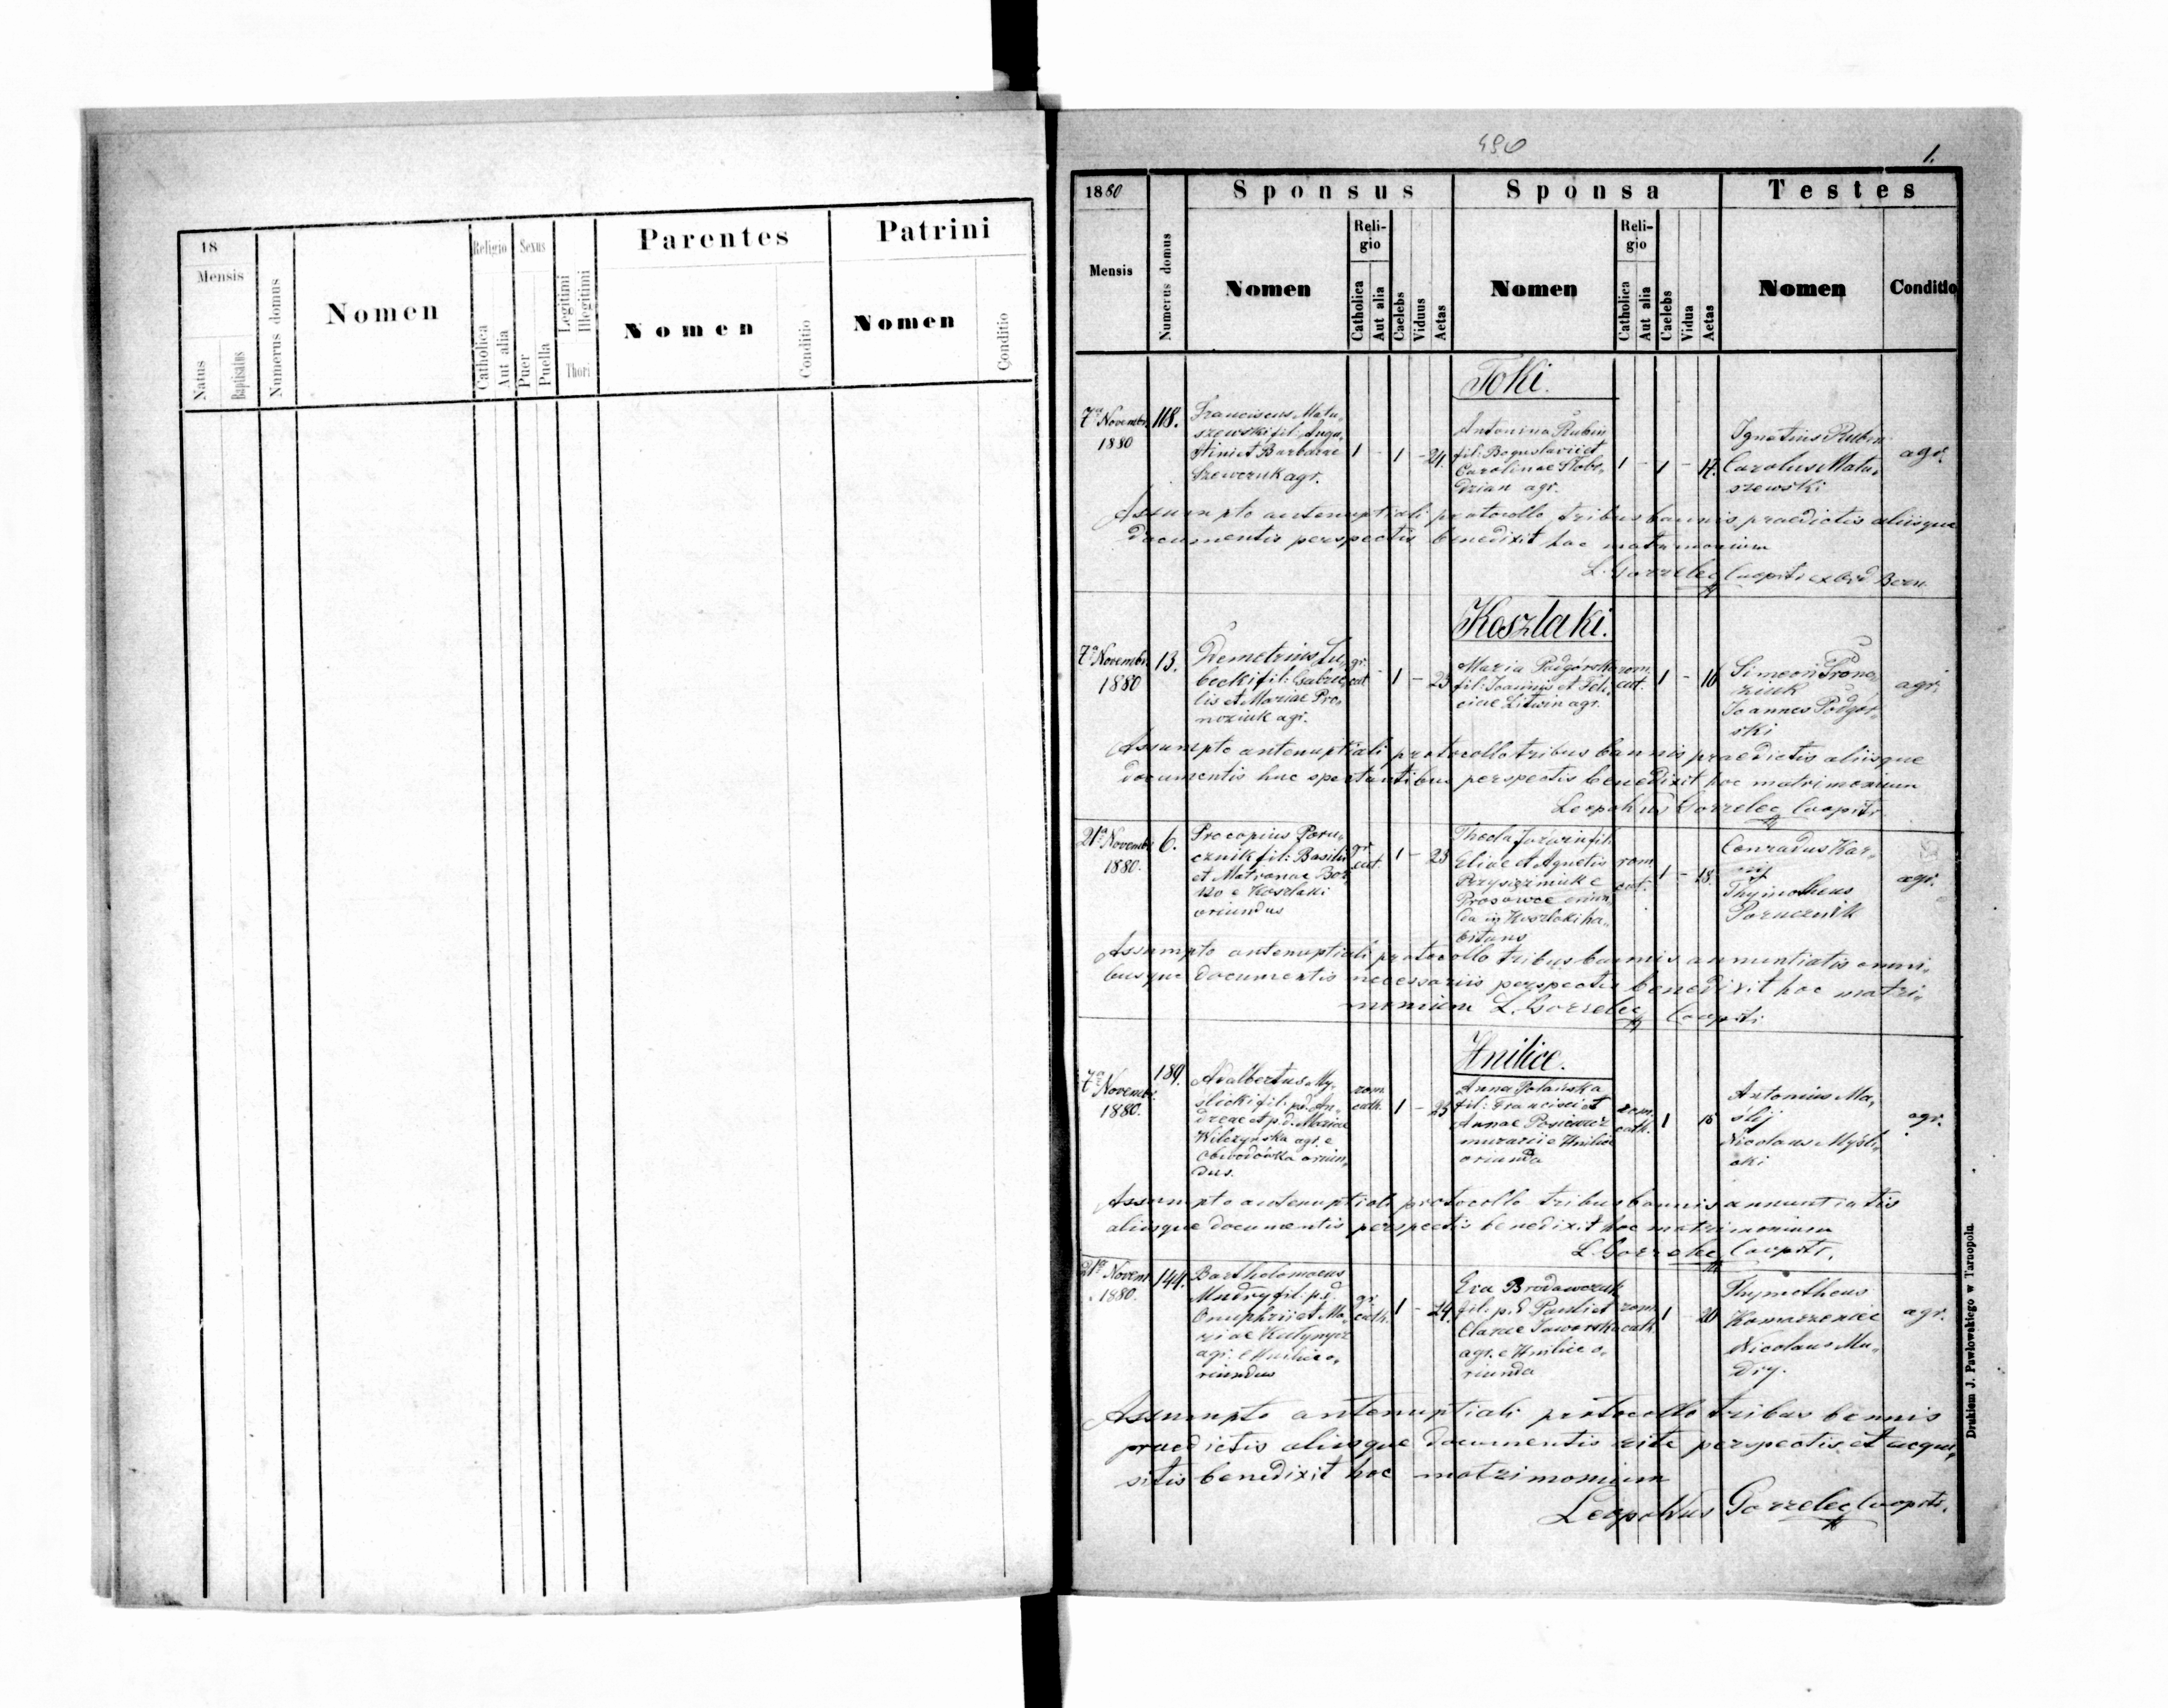 490
1.
18
Mensis
Natus
Baptisatus
Numerus domus
Nomen
Religio
Catholica
Aut alia
Sexus
Puer
Puella
Legitimi
Illegitimi
Thori
Parentes
Nomen
Conditio
Patrini
Nomen
Conditio
1880
Mensis
Numerus domus
Sponsus
Nomen
Reli-
gio
Catholica
Aut alia
Caelebs
Viduus
Aetas
Sponsa
Nomen
Reli-
gio
Catholica
Aut alia
Caelebs
Vidua
Aetas
Testes
Nomen
Conditio
Toki.
7a Novembr.
1880
118.
Franciscus Matu„
szewski fil. Augu„
stini et Barbarae
Szewczuk agr.
1 - 1 - 24.
Antonina Rubin
fil: Boguslavi et
Carolinae Stobo„
dzian agr.
1 - 1 - 17.
Ignatius Rubin
Carolus Matu„
szewski
agr.
Assumpto antenuptiali protocollo, tribus bannis praedictis aliisque
documentis perspectis benedixit hoc matrimonium
L. Gorzelec Coopr. ex Ord. Bern.
Koszlaki.
7a Novembr.
1880
13.
Demetrius Lu„
becki fil: Gabrie„
lis et Mariae Pro„
nczuk agr.
gr.
cat
- 1 - 23
Maria Podgórska
fil: Joannis et Feli„
ciae Litwin agr.
rom.
cat.
1 - 16
Simeon Pron„
czuk
Joannes Podgór„
ski
agr.
Assumpto antenuptiali protocollo tribus bannis praedictis aliisque
documentis huc spectantibus perspectis benedixit hoc matrimonium
Leopoldus Gorzelec Cooprtr.
21a Novembr.
1880.
6.
Procopius Poru„
cznik fil: Basilii
et Matronae Bor„
e Koszlaki
oriundus
gr.
cat.
1 - 23
Thecla fil.
Eliae et Agnetis
e
Prosowce oriun„
da in Koszlaki ha„
bitans
rom.
cat.
1 - 18.
Conradus Kar„
Thymotheus
Porucznik
agr.
Assumpto antenuptiali protocollo tribus bannis annuntiatis omni„
busque documentis necessariis perspectis benedixit hoc matri„
monium L. Gorzelec Cooprtr
Hnilice.
7a Novembr.
1880.
189.
Adalbertus My„
ślicki fil. p.d. An„
dreae et p.d. Mariae
Wilczyńska agr. e
Obodówka oriun„
dus.
rom.
cath.
1 - 25
Anna Polańska
fil: Francisci et
Annae
murarii e Hnilice
oriunda
rom.
cath.
1
Antonius Ma„
ślij
Nicolaus Myśli„
cki
agr.
Assumpto antenuptiali protocollo tribus bannis annuntiatis
aliisque documentis perspectis benedixit hoc matrimonium
L. Gorzelec Cooprtr.
21a Novem
1880.
144.
Bartholomaeus
Mudry fil: p.d.
Onuphrii et Ma„
riae
agr. e Hnilice o„
riundus
gr.
cath.
1 - 24.
Eva Brodawczuk
fil. p.d. Pauli et
Clarae Jaworska
agr. e Hnilice o„
riunda
rom.
cath.
1 20
Thymotheus
Nicolaus Mu„
dry.
agr.
Assumpto antenuptiali protocollo tribus bannis
praedictis aliisque documentis rite perspectis et acqui„
sitis benedixit hoc matrimonium
Leopoldus Gorzelec Cooprtr.
Drukiem J. Pawlowskiego w Tarnopolu